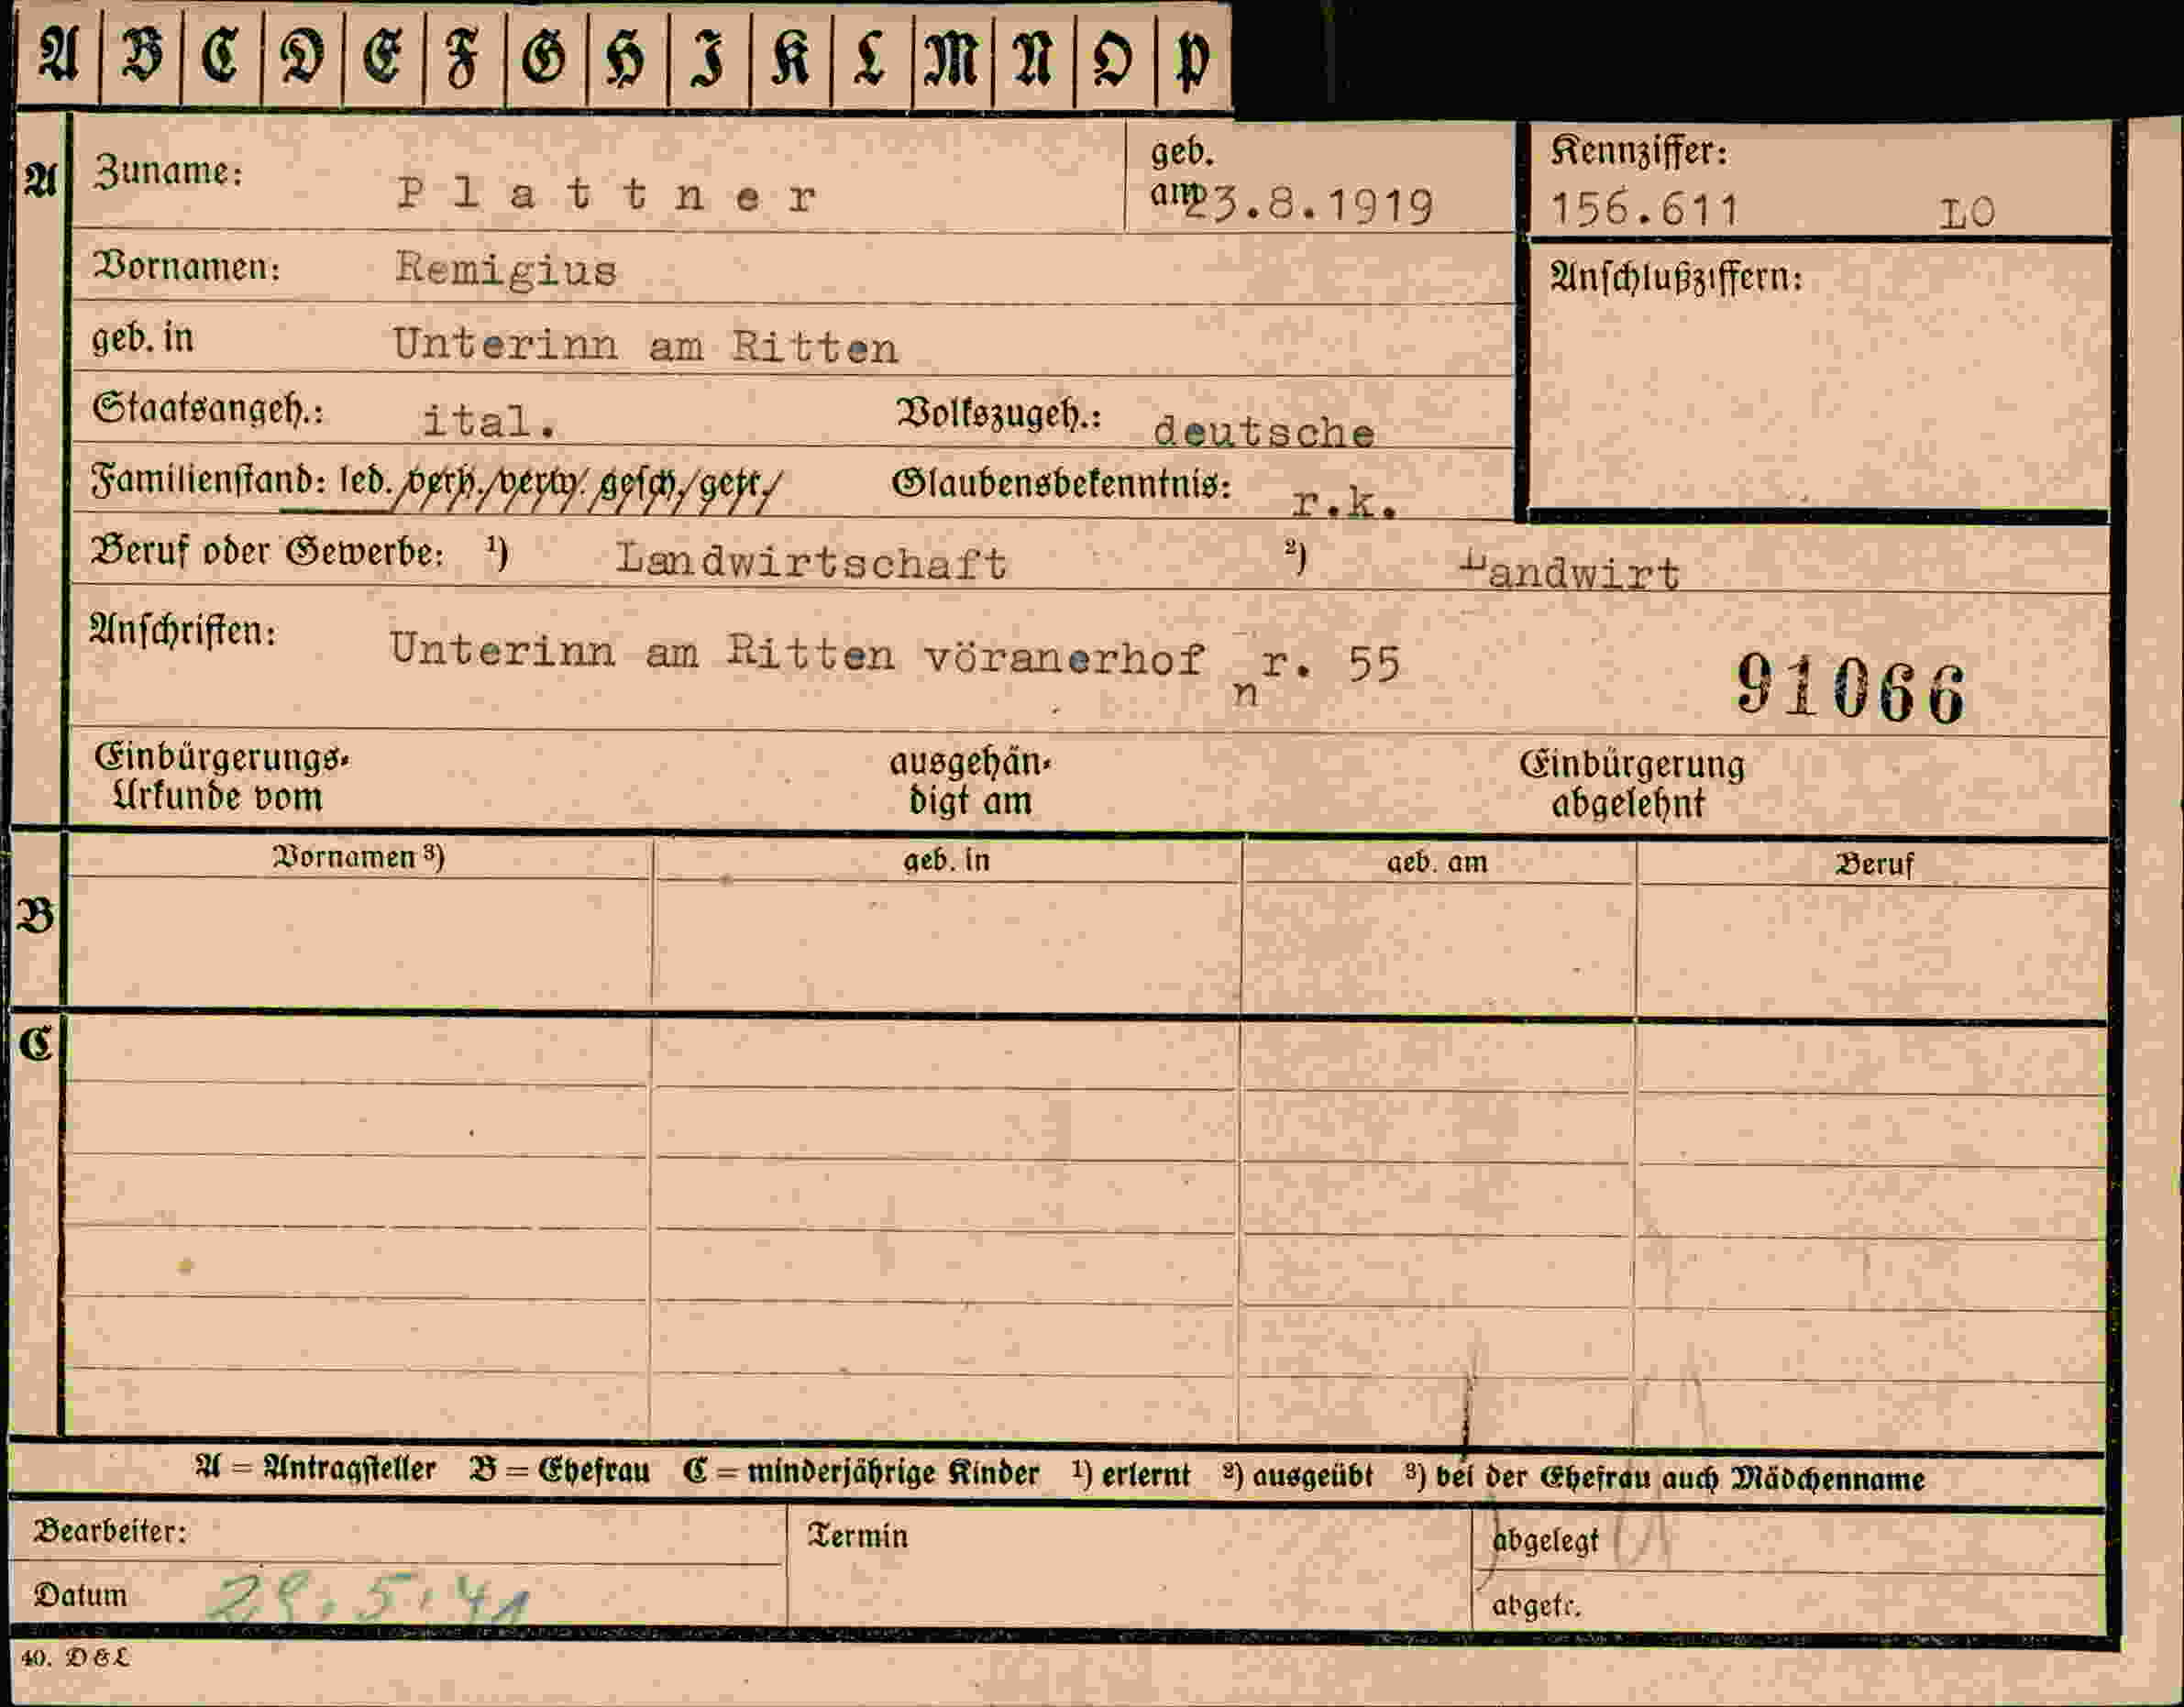 A B C D E F G H I K L M N O P
A Zuname: Plattner geb. am 23.8.1919 Kennziffer: 156.611 LO
Vornamen: Remigius Anschlußziffern:
geb. in Unterinn am Ritten
Staatsangeh.: ital. Volkszugeh.: deutsche
Familienstand: led./verh./verw./gesch./getr./ Glaubensbekenntnis: r.k.
Beruf oder Gewerbe: ¹) Landwirtschaft ²) Landwirt
Anschriften: Unterinn am Ritten vöranerhof nr. 55 91066
Einbürgerungs- ausgehän- Einbürgerung
Urkunde vom digt am abgelehnt
Vornamen ³) geb. in geb. am Beruf
B
C
A = Antragsteller B = Ehefrau C = minderjährige Kinder ¹) erlernt ²) ausgeübt ³) bei der Ehefrau auch Mädchenname
Bearbeiter: Termin abgelegt
Datum 29.5.41 abgetr.
40. D & L